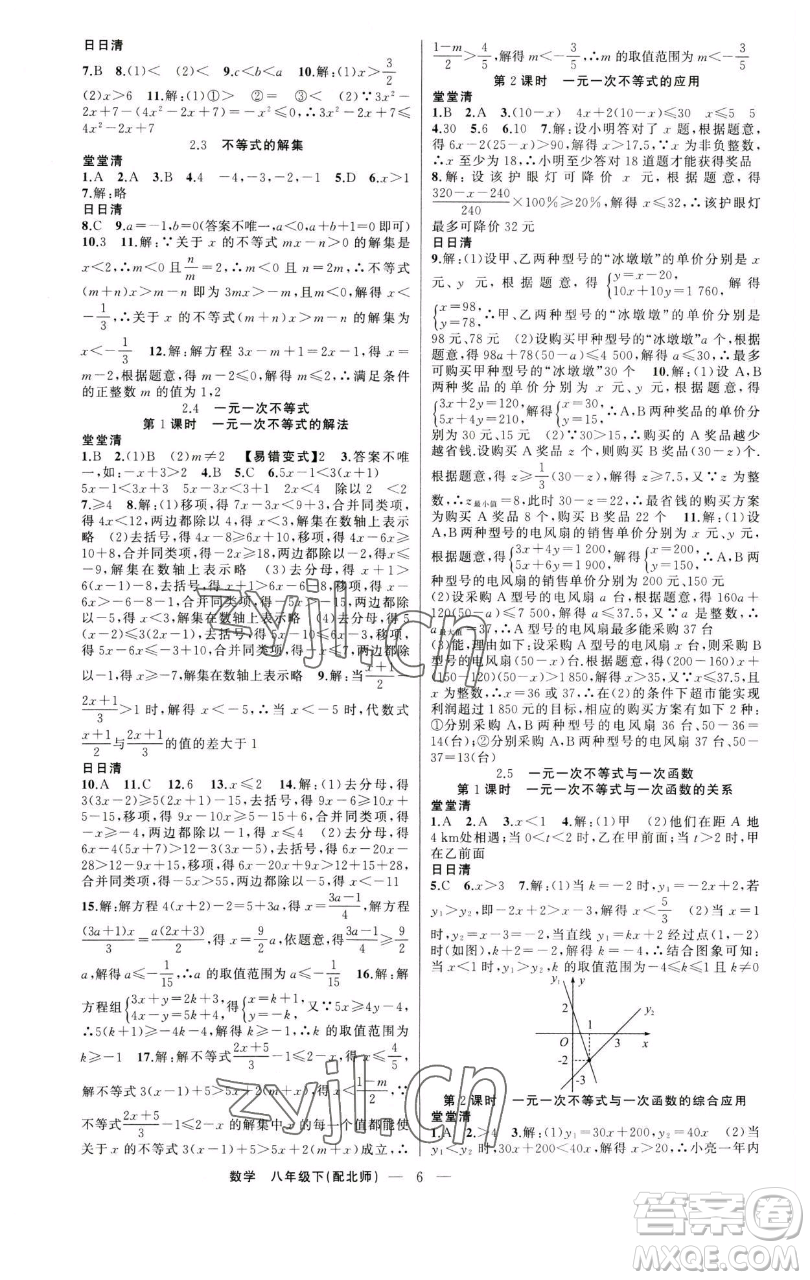 日日清
7.B 8.(1)< (2)< 9.c<b<a 10.解:(1)x>3/2
(2)x>6 11.解:(1)①> ②= ③< (2)∵3x²-
2x+7-(4x²-2x+7)=-x²≤0,∴3x²-2x+7≤
4x²-2x+7
2.3 不等式的解集
堂堂清
1.A 2.A 3.B 4.4 -4,-3,-1 5.D 6.x>1
7.解:略
日日清
8.C 9.a=-1,b=0(答案不唯一,a<0,a+b+1=0即可)
10.3 11.解:∵关于x的不等式mx-n>0的解集为
x<1/3,∴m<0且n/m=1/3,∴m=3n,n<0,∴不等式
(m+n)x>m-n即为3nx>m-n,解得x<
-1/3,∴关于x的不等式(m+n)x>m-n的解集为
x<-1/3 12.解:解方程3x-m+1=2x-1,得x=
m-2,根据题意,得m-2≤0,解得m≤2,∴满足条件
的正整数m的值为1,2
2.4 一元一次不等式
第1课时 一元一次不等式的解法
堂堂清
1.B 2.(1)B (2)m≠2 【易错变式】2 3.答案不唯
一,如:-x+3>2 4.B 5.C 6.5x-1<3(x+1)
5x-1<3x+3 5x-3x<3+1 2x<4 除以2 <2
7.≥4 8.解:(1)移项,得7x-3x<9+3,合并同类项,
得4x<12,两边都除以4,得x<3,解集在数轴上表示
略 (2)去括号,得4x-8≥6x+10,移项,得4x-6x≥10+8,
合并同类项,得-2x≥18,两边都除以-2,得x≤
-9,解集在数轴上表示略 (3)去分母,得3x+1>
6(x-1)-8,去括号,得3x+1>6x-6-8,移项,得
3x-6x>-6-8-1,合并同类项,得-3x>-15,两边
都除以-3,得x<5,解集在数轴上表示略
x≥-7,解集在数轴上表示略 9.解:当(x+1)/2-
(2x+1)/3>1时,解得x<-5,∴当x<-5时,代数式
(x+1)/2与(2x+1)/3的值的差大于1
日日清
10.A 11.C 12.6 13.x≤2 14.解:(1)去分母,得
3(3x-2)≥5(2x+1)-15,去括号,得9x-6≥10x+
5-15,移项,得9x-10x≥5-15+6,合并同类项,得
-x≥-4,解得x≤4 (2)去分母,得6x-20-
6x-4(5x+7)≤2x-12,去括号,得6x-20x-
28>2x-12+28,
合并同类项,
15.解:解方程4(x+2)-2=5+3a,得x=(3a-1)/4,解方程
(3a+1)x/3=a(2x+3)/2,得x=9/2 a,依题意,得(3a-1)/4≥9/2
a,解得a≤-1/15,∴a的取值范围为a≤-1/15 16.解:解
方程组{3x+y=k+1, 得
又∵5x≥4y-4,
∴5(k+1)≥-4k-4,解得k≥-1,∴k的取值范围为
k≥-1 17.解:解不等式(2x+5)/3-1≤2-x,得x≤4/5,
解不等式3(x-1)+5>5x+2(m+x),得x<(1-m)/2,∵
不等式(2x+5)/3-1≤2-x的解集中的每一个值都能使
关于x的不等式3(x-1)+5>5x+2(m+x)成立,∴
(1-m)/2>4/5,解得m<-3/5,∴m的取值范围为m<-3/5
第2课时 一元一次不等式的应用
堂堂清
1.B 2.A 3.(10-x) 4x+2(10-x)≤30 x≤5 5
4.30 5.6 6.10 7.解:设小明答对了x题,根据题意,
得6x-2(25-x)>90,解得x>17.5,又∵x为非负整数,
∴x至少为18,∴小明至少答对18道题才能获得奖品
8.解:设该护眼灯可降价x元,根据题意,得
(320-x-240)/240×100%≥20%,解得x≤32,∴该护眼灯
最多可降价32元
日日清
9.解:(1)设甲、乙两种型号的“冰墩墩”的单价分别是x
元、y元,根据题意,得{y=x-20, 10x+10y=1 760,解得
{x=98, y=78,∴甲、乙两种型号的“冰墩墩”的单价分别是
98元、78元 (2)设购买甲种型号的“冰墩墩”a个,根据
题意,得98a+78(50-a)≤4 500,解得a≤30,∴最多
可购买甲种型号的“冰墩墩”30个 10.解:(1)设A,B
两种奖品的单价分别为x元、y元,根据题意,得
{3x+2y=120, 5x+4y=210,解得{x=30, y=15,∴A,B两种奖品的单价分
别为30元、15元 (2)∵购买的A奖品越少
越省钱.设购买A奖品z个,则购买B奖品(30-z)个,
根据题意,得z≥1/3(30-z),解得z≥7.5,又∵z为整
数,∴z最小值=8,此时30-z=22,∴最省钱的购买方案
为购买A奖品8个,购买B奖品22个 11.解:(1)设
A,B两种型号的电风扇的销售单价分别为x元、y元,根据
题意,得{3x+4y=1 200, 5x+6y=1 900,解得{x=200, y=150,∴A,B两
种型号的电风扇的销售单价分别为200元,150元
(2)设采购A种型号的电风扇a台,根据题意,得160a
+120(50-a)≤7 500,解得a≤37.5,又∵a是整数,
∴a最大值=37,∴A种型号的电风扇最多能采购37台
(3)能,理由:设采购A型号的电风扇x台,则采购B型
号的电风扇(50-x)台,根据题意,得(200-160)x+
(150-120)(50-x)>1 850,解得x>35,又∵x≤37,且
x为整数,∴x=36或37,∴在(2)的条件下超市能实现
利润超过1 850元的目标,相应的购买方案有如下2种:
①分别采购A,B两种型号的电风扇36台、50-36=
14(台);②分别采购A,B两种型号的电风扇37台、50-
37=13(台)
2.5 一元一次不等式与一次函数
第1课时 一元一次不等式与一次函数的关系
堂堂清
1.A 2.A 3.x<1 4.解:(1)甲 (2)他们在距A地
4 km处相遇;当0<t<2时,乙在甲前面;当t>2时,甲
在乙前面
日日清
5.C 6.x>3 7.解:(1)当k=-2时,y₁=-2x+2,若
y₁>y₂,即-2x+2>x-3,解得x<5/3 (2)当x=1
时,y₂=x-3=-2,当直线y₁=kx+2经过点(1,-2)
时(如图),k+2=-2,解得k=-4,∴结合图象可知:当
x<1时,y₁>y₂,-4≤k≤1且k≠0
y
y₂
2
1
O
3
x
-2
-3
第2课时 一元一次不等式与一次函数的综合应用
堂堂清
1.A 2.A 3.解:(1)y₁=30x+200,y₂=40x (2)当
y₁<y₂时,30x+200<40x,解得x>20,∴小亮一年内
数学 八年级下(配北师) — 6 —
zyjl.cn
zyjl.cn
答案圈
MXQE.COM